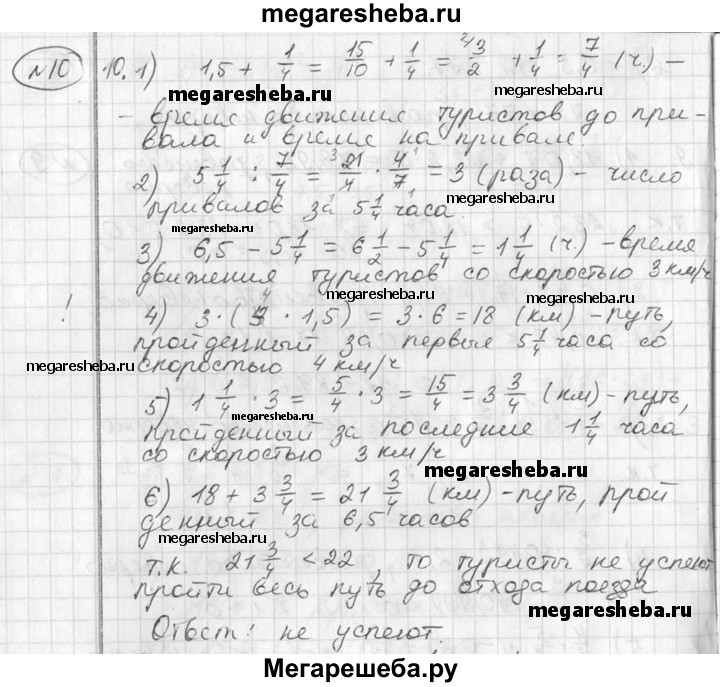 megaresheba.ru
№10 10. 1) 1,5 + 1/4 = 15/10 + 1/4 = 3/2 + 1/4 = 7/4 (ч.) –
megaresheba.ru megaresheba.ru
– время движения туристов до при-
вала и время на привале.
megaresheba.ru
2) 5 1/4 : 7/4 = 21/4 · 4/7 = 3 (раза) – число
привалов за 5 1/4 часа.
megaresheba.ru
3) 6,5 – 5 1/4 = 6 1/2 – 5 1/4 = 1 1/4 (ч.) – время
движения туристов со скоростью 3 км/ч
megaresheba.ru
! 4) 3 · (4 · 1,5) = 3 · 6 = 18 (км) – путь,
megaresheba.ru
пройденный за первые 5 1/4 часа со
скоростью 4 км/ч
megaresheba.ru
5) 1 1/4 · 3 = 5/4 · 3 = 15/4 = 3 3/4 (км) – путь,
megaresheba.ru
пройденный за последние 1 1/4 часа
со скоростью 3 км/ч
megaresheba.ru
6) 18 + 3 3/4 = 21 3/4 (км) – путь, прой
денный за 6,5 часов
megaresheba.ru
т.к. 21 3/4 < 22, то туристы не успеют
пройти весь путь до отхода поезда
megaresheba.ru
Ответ: не успеют.
Мегарешеба.ру